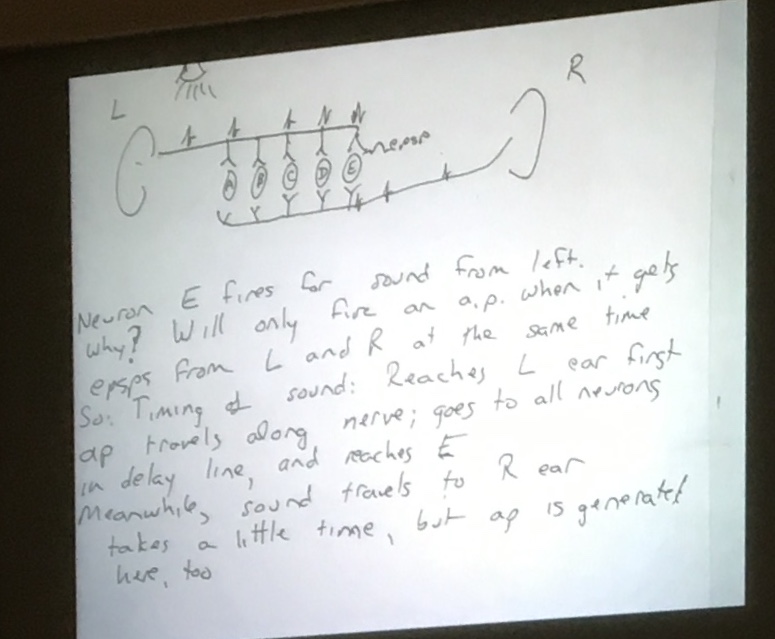 L
R
epsp
A B C D E
Neuron E fires for sound from left.
Why? Will only fire an a.p. when it gets
epsps from L and R at the same time
So: Timing of sound: Reaches L ear first
ap travels along nerve; goes to all neurons
in delay line, and reaches E
Meanwhile, sound travels to R ear
takes a little time, but ap is generated
here, too